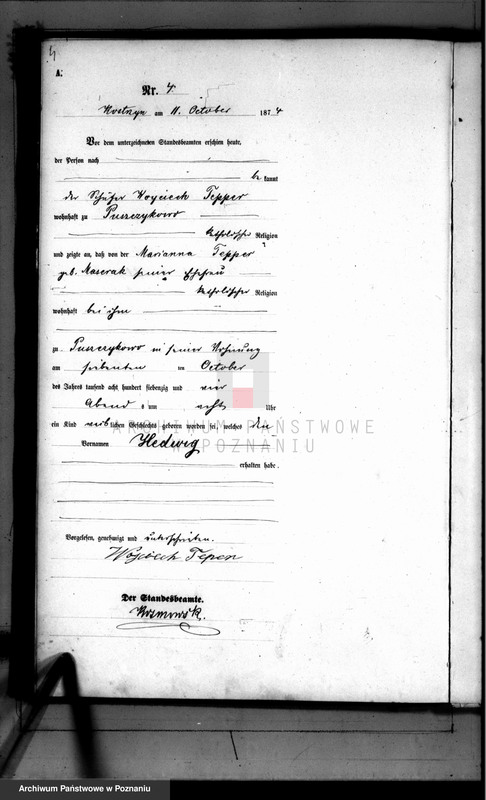 4
A.
Nr. 4.
Kostrzyn am 11. October 1874
Vor dem unterzeichneten Standesbeamten erschien heute,
der Person nach
be kannt
der Schäfer Woyciech Tepper
wohnhaft zu Puszczykowo
katholischer Religion
und zeigte an, daß von der Marianna Tepper
geb. seiner Ehefrau
katholischer Religion
wohnhaft bei ihm
zu Puszczykowo in seiner Wohnung
am siebenten ten October
des Jahres tausend acht hundert siebenzig und vier
Abends um acht Uhr
ein Kind weiblichen Geschlechts geboren worden sei, welches den
Vornamen Hedwig
erhalten habe.
Vorgelesen, genehmigt und unterschrieben.
Wojciech Teper
Der Standesbeamte.
ARCHIWUM PAŃSTWOWE
W POZNANIU
Archiwum Państwowe w Poznaniu